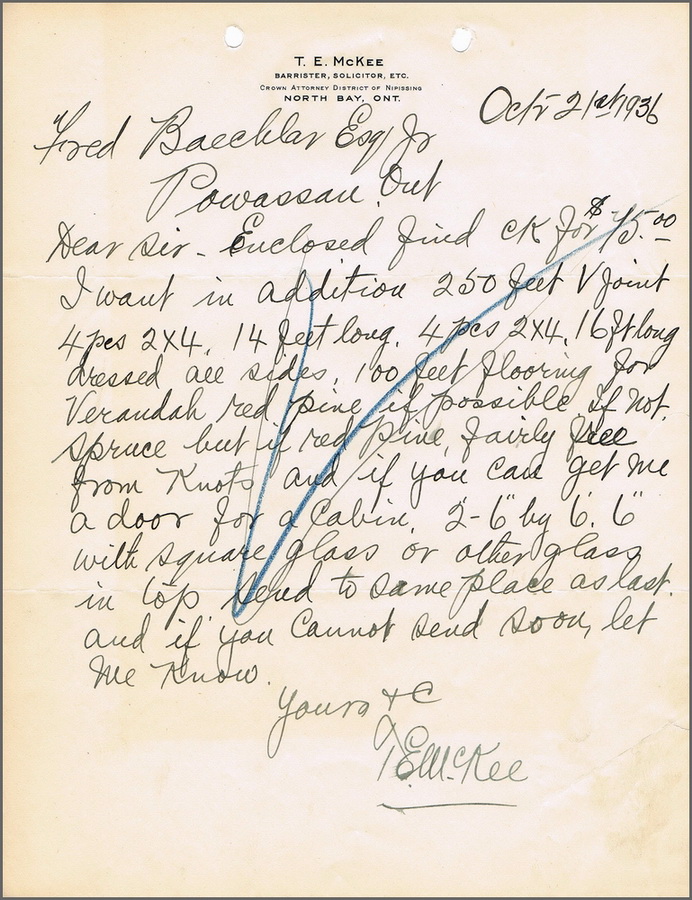 T. E. McKee
BARRISTER, SOLICITOR, ETC.
CROWN ATTORNEY DISTRICT OF NIPISSING
NORTH BAY, ONT.
Octr 21st 1936
Fred Baechlar Esq Jr
Powassan. Ont
Dear Sir - Enclosed find ck for $75.00
I want in addition 250 feet V Joint
4 pcs 2x4, 14 feet long, 4 pcs 2x4, 16 ft long
dressed all sides, 100 feet flooring for
Verandah red pine if possible If not,
spruce but if red pine, fairly free
from Knots and if you can get me
a door for a Cabin, 2-6" by 6.6"
with square glass or other glass
in top send to same place as last.
and if you cannot send soon, let
me know.
Yours & C
T.E. McKee